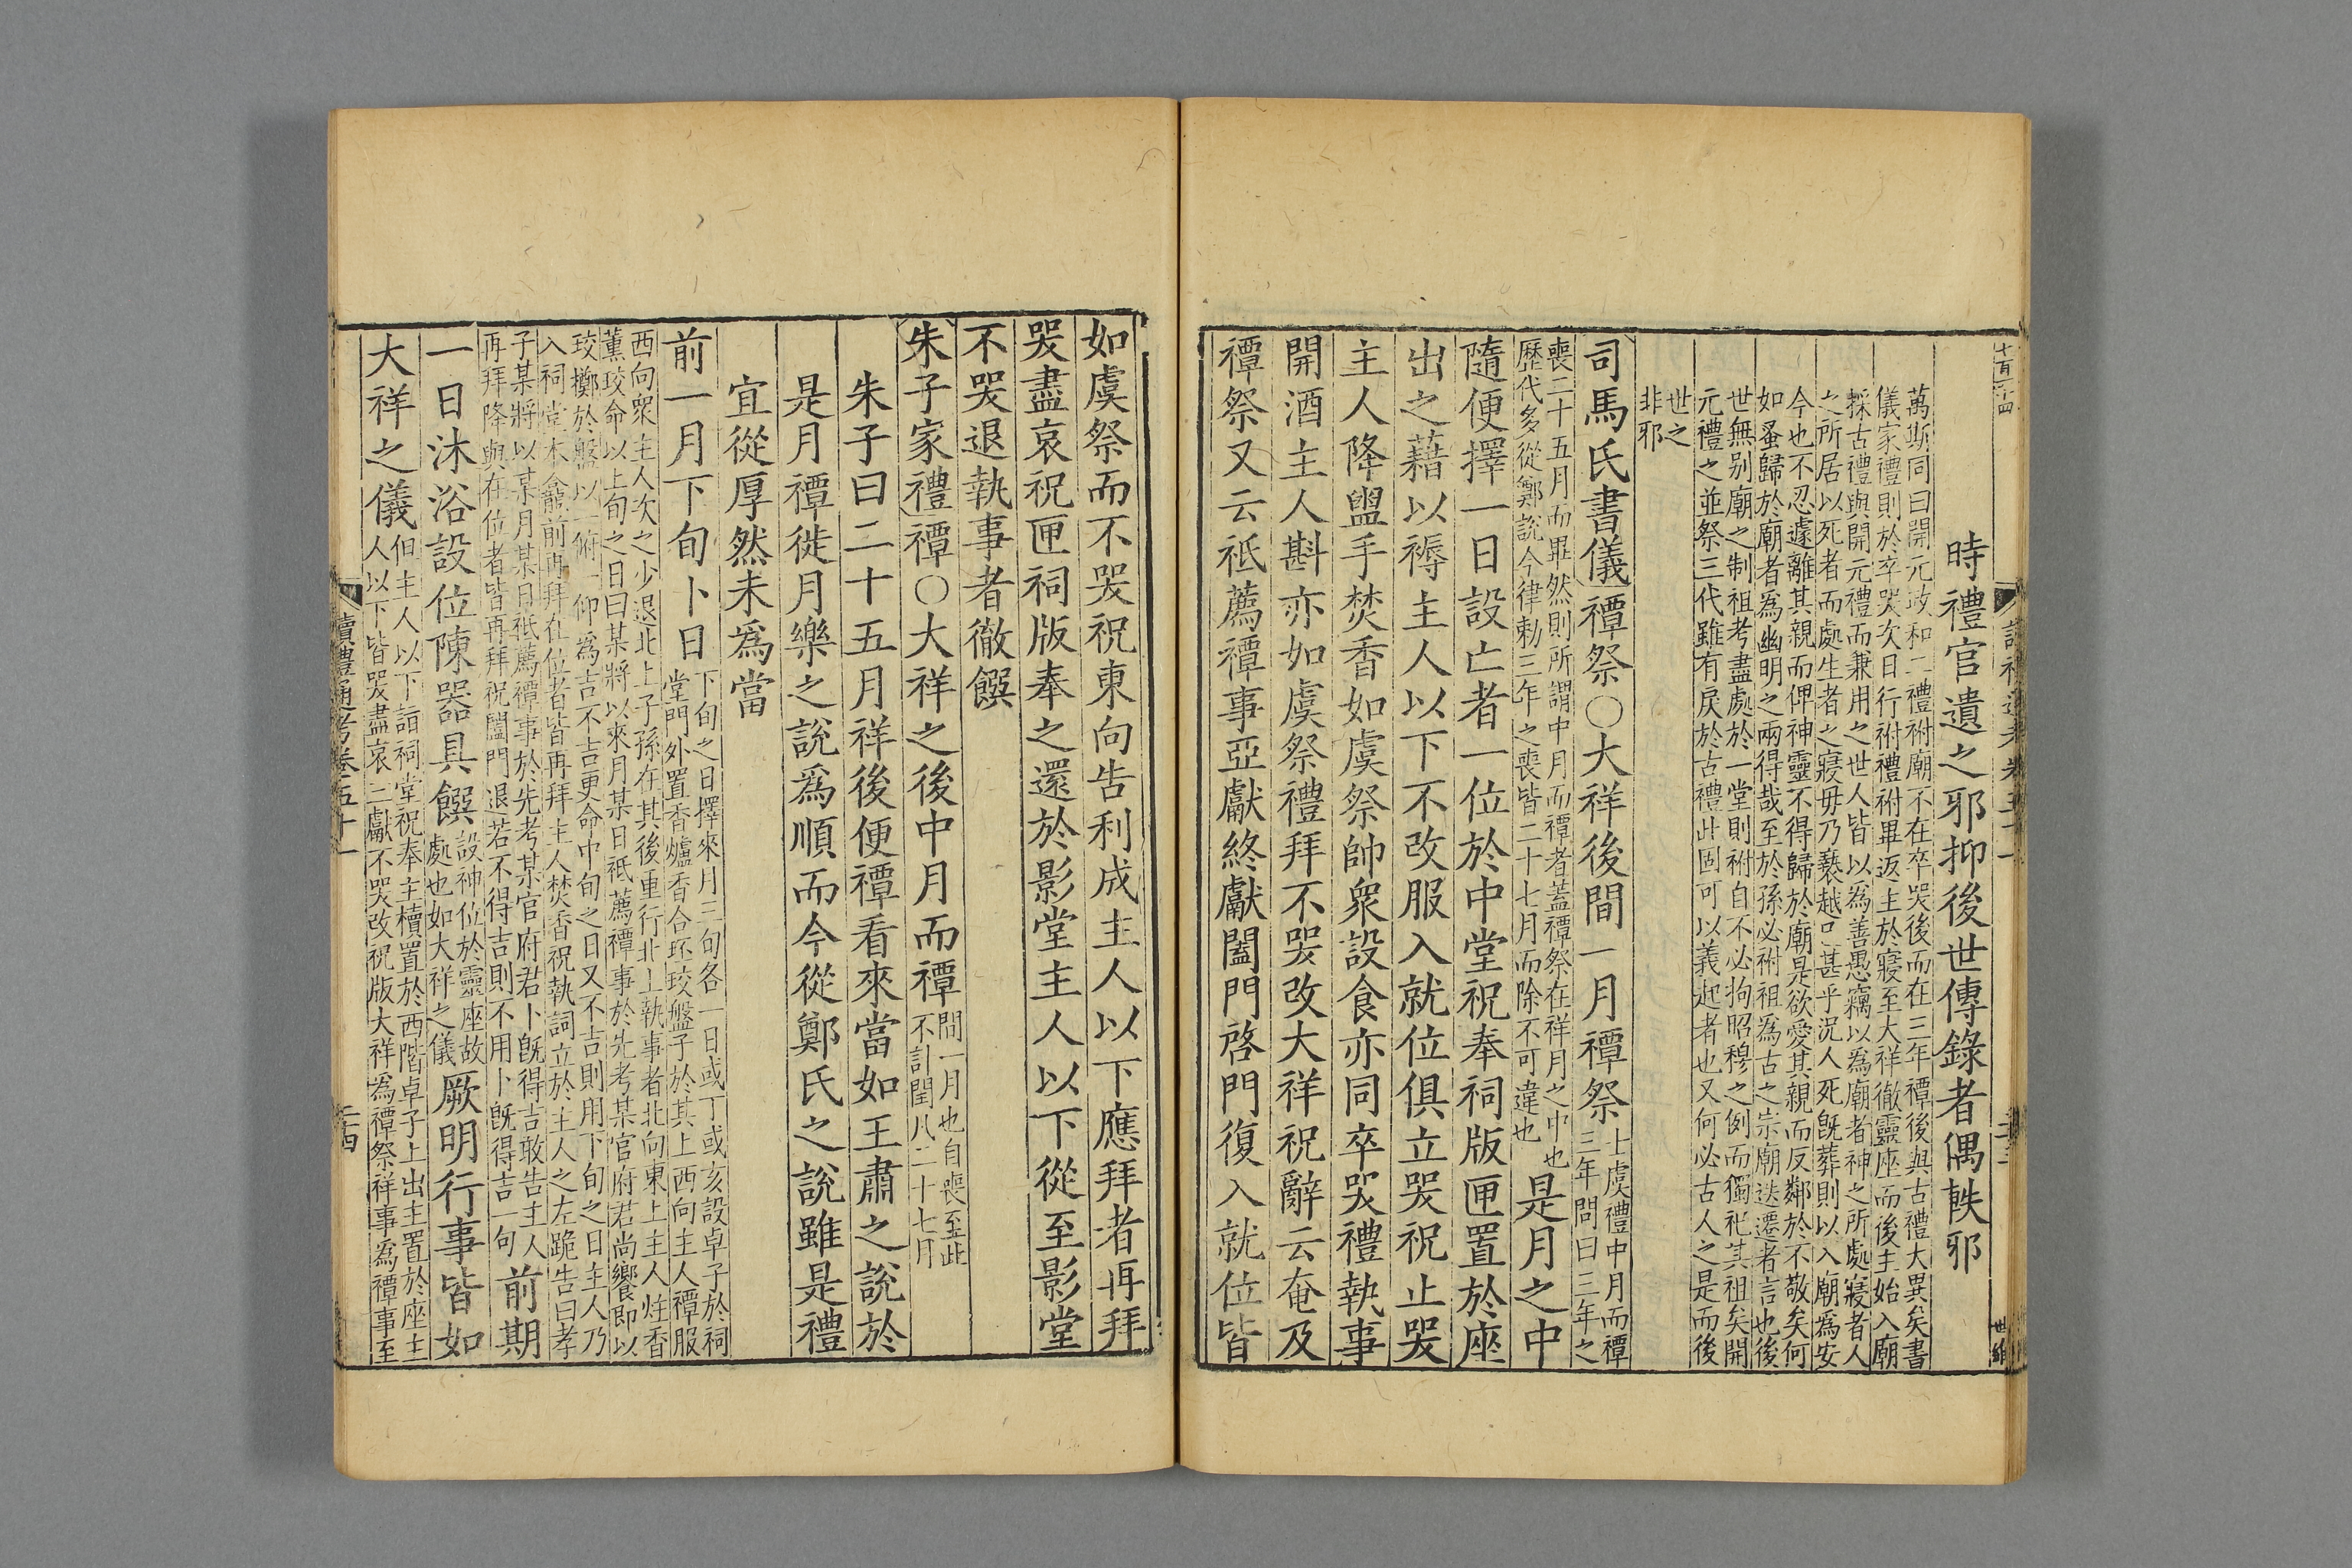 時禮官遺之邪抑後世傳錄者偶軼邪
萬斯同曰開元政和二禮祔廟不在卒哭後而在三年禫後與古禮大異矣書
儀家禮則於卒哭次日行祔禮祔畢返主於寢至大祥徹靈座而後主始入廟
採古禮與開元禮而兼用之世人皆以為善愚竊以爲廟者神之所處寢者人
之所居以死者而處生者之寢毋乃褻越已甚乎況人死旣葬則以入廟為安
今也不忍遽離其親而俾神靈不得歸於廟是欲愛其親而反鄰於不敬矣何
如蚤歸於廟者爲幽明之兩得哉至於孫必祔祖爲古之宗廟迭遷者言也後
世無别廟之制祖考盡處於一堂則祔自不必拘昭穆之例而獨祀其祖矣開
元禮之並祭三代雖有戾於古禮此固可以義起者也又何必古人之是而後
世之
非邪
司馬氏書儀禫祭○大祥後間一月禫祭
士虞禮中月而禫
三年問曰三年之
喪二十五月而畢然則所謂中月而禫者蓋禫祭在祥月之中也
歷代多從鄭說今律勅三年之喪皆二十七月而除不可違也
是月之中
隨便擇一日設亡者一位於中堂祝奉祠版匣置於座
出之藉以褥主人以下不改服入就位俱立哭祝止哭
主人降盥手焚香如虞祭帥衆設食亦同卒哭禮執事
開酒主人斟亦如虞祭禮拜不哭改大祥祝辭云奄及
禫祭又云祇薦禫事亞獻終獻闔門啓門復入就位皆
如虞祭而不哭祝東向告利成主人以下應拜者再拜
哭盡哀祝匣祠版奉之還於影堂主人以下從至影堂
不哭退執事者徹饌
朱子家禮禫○大祥之後中月而禫
間一月也自喪至此
不計閏凡二十七月
朱子曰二十五月祥後便禫看來當如王肅之說於
是月禫徙月樂之說爲順而今從鄭氏之說雖是禮
宜從厚然未爲當
前一月下旬卜日
下旬之日擇來月三旬各一日或丁或亥設卓子於祠
堂門外置香爐香合环珓盤子於其上西向主人禫服
西向衆主人次之少退北上子孫在其後重行北上執事者北向東上主人炷香
薰珓命以上旬之日曰某將以來月某日祇薦禫事於先考某官府君尚饗即以
珓擲於盤以一俯一仰爲吉不吉更命中旬之日又不吉則用下旬之日主人乃
入祠堂本龕前再拜在位者皆再拜主人焚香祝執詞立於主人之左跪告曰孝
子某將以某月某日祇薦禫事於先考某官府君卜旣得吉敢告主人
再拜降與在位者皆再拜祝闔門退若不得吉則不用卜旣得吉一句
前期
一日沐浴設位陳器具饌
設神位於靈座故
處也如大祥之儀
厥明行事皆如
大祥之儀
但主人以下詣祠堂祝奉主櫝置於西階卓子上出主置於座主
人以下皆哭盡哀三獻不哭改祝版大祥爲禫祭祥事爲禫事至
讀禮通考卷五十一
二十四